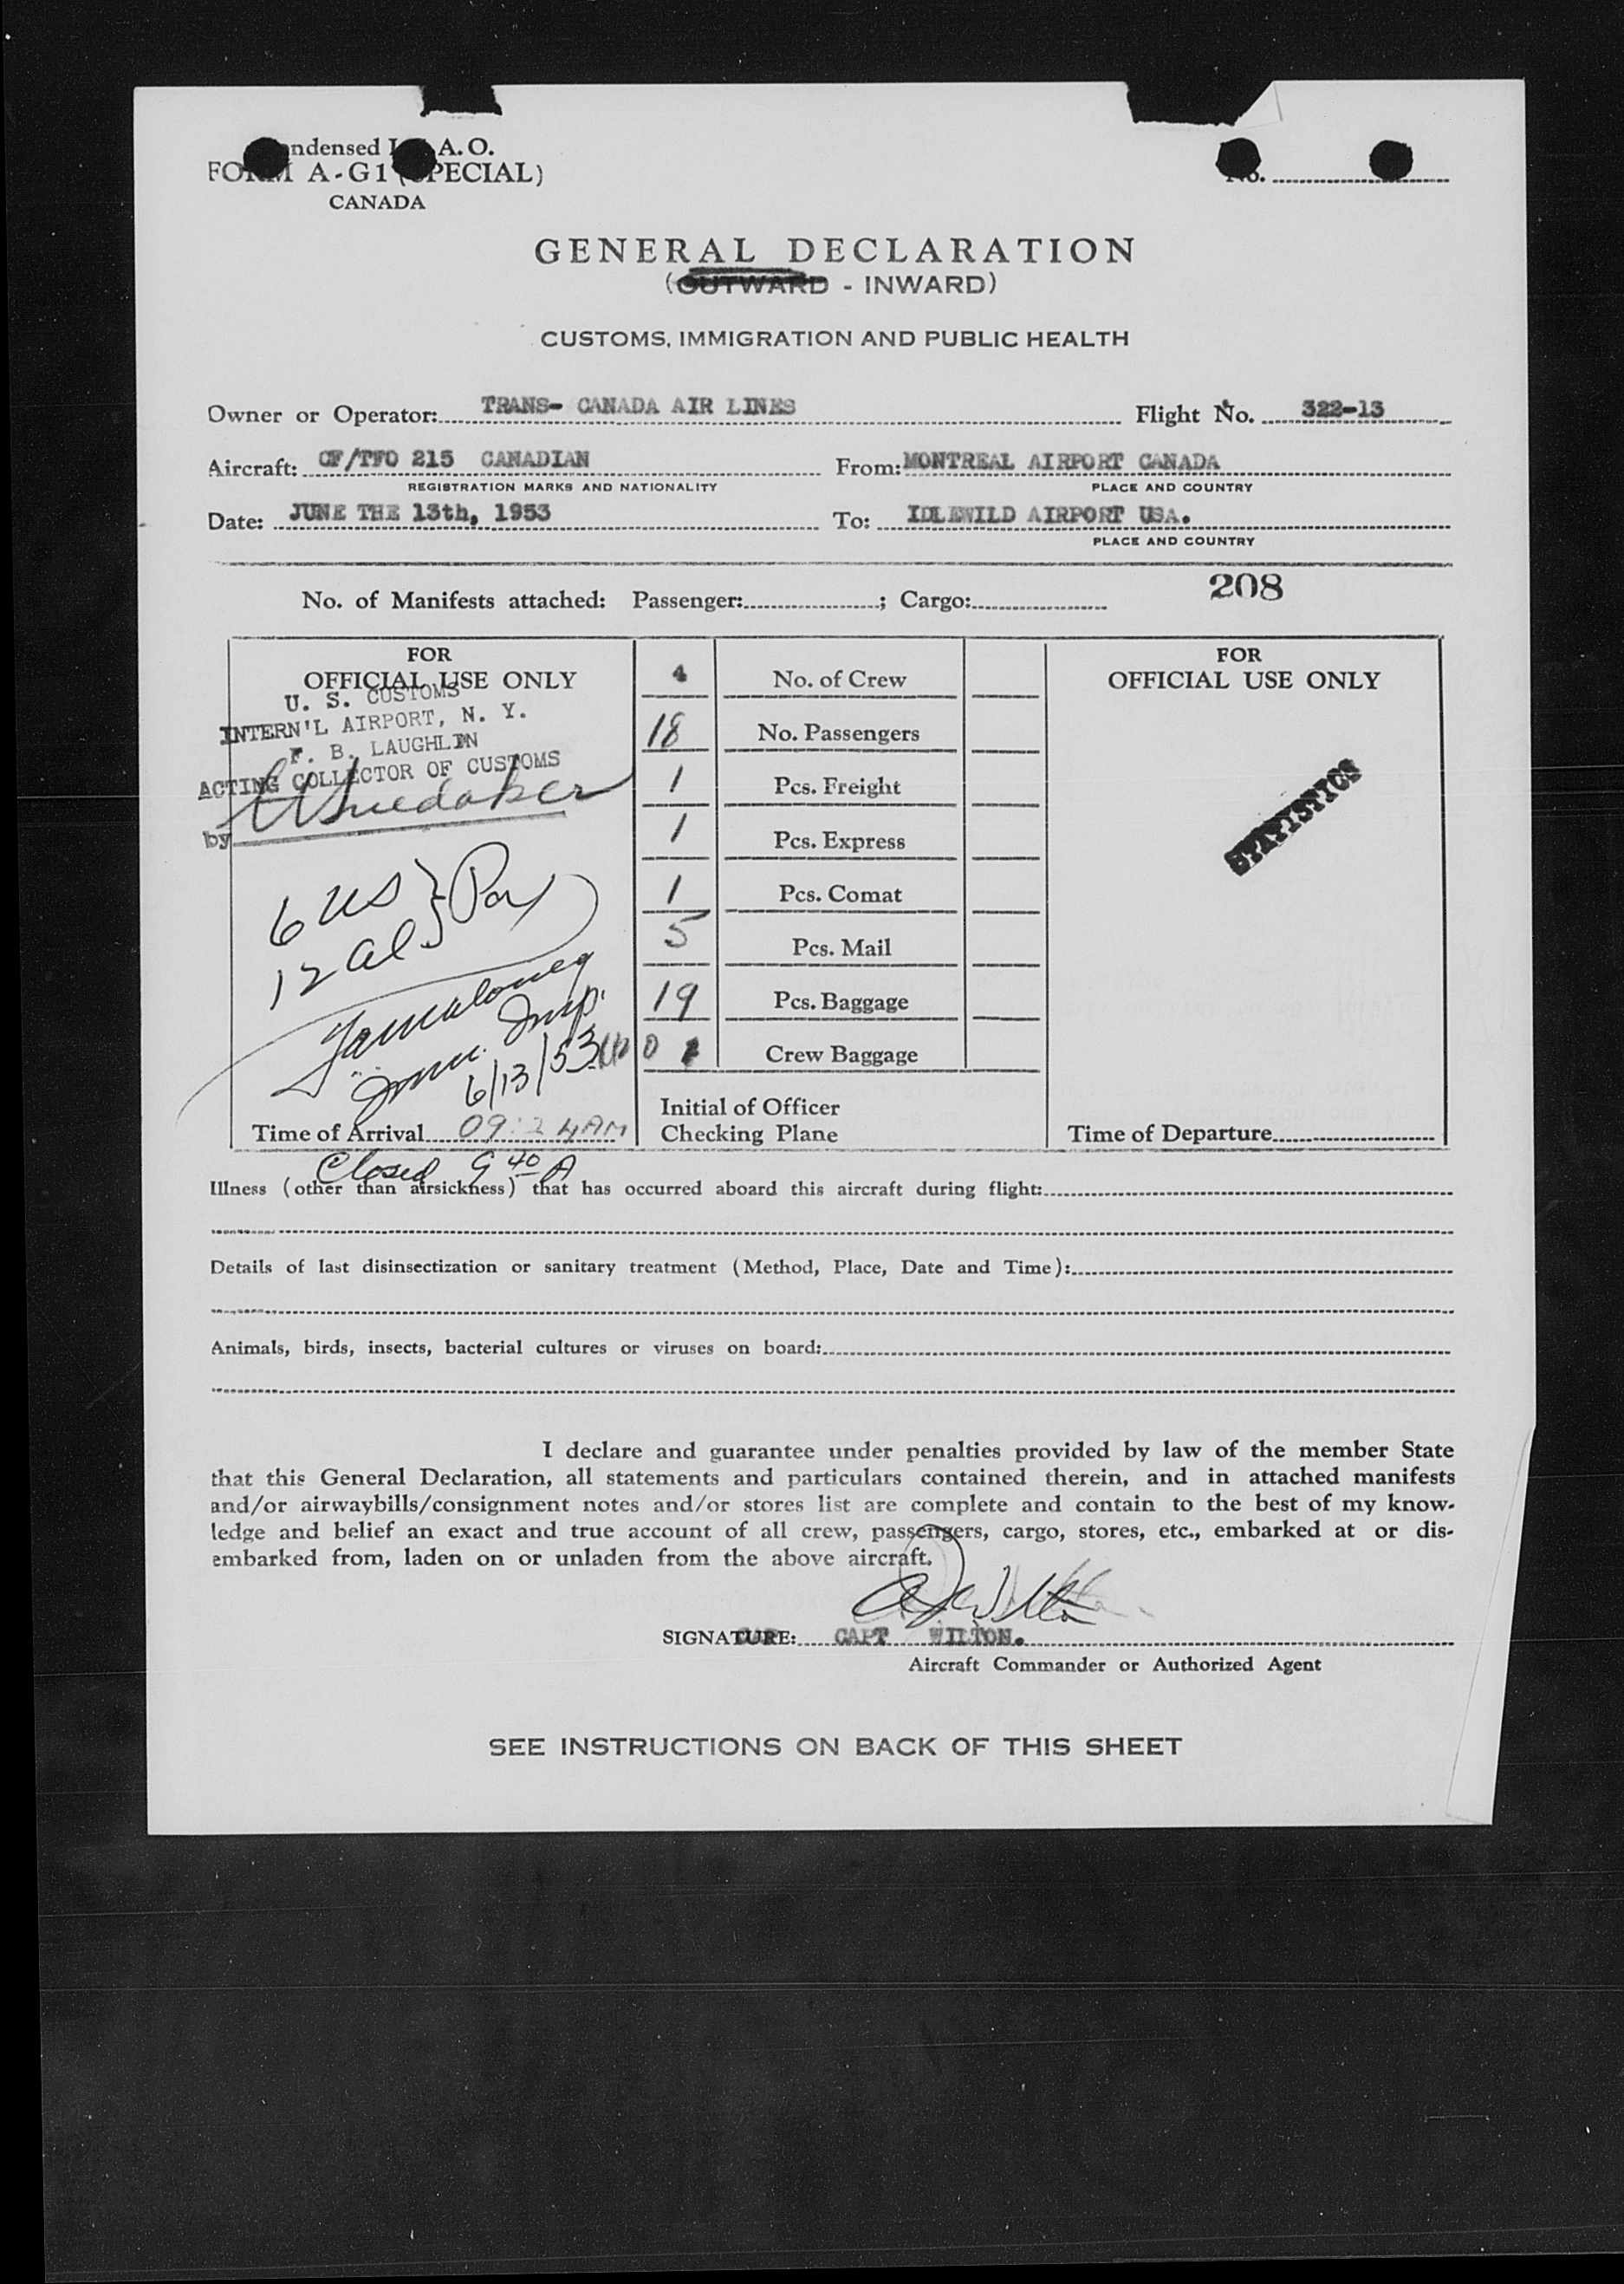 ndensed I A.O.
FORM A-G1 (SPECIAL)
CANADA
No.
GENERAL DECLARATION
(OUTWARD - INWARD)
CUSTOMS, IMMIGRATION AND PUBLIC HEALTH
Owner or Operator: TRANS- CANADA AIR LINES Flight No. 322-13
Aircraft: CF/TFO 215 CANADIAN From: MONTREAL AIRPORT CANADA
REGISTRATION MARKS AND NATIONALITY PLACE AND COUNTRY
Date: JUNE THE 13th, 1953 To: IDLEWILD AIRPORT USA.
PLACE AND COUNTRY
208
No. of Manifests attached: Passenger: ; Cargo:
FOR
OFFICIAL USE ONLY
U. S. CUSTOMS
INTERN'L AIRPORT, N. Y.
F. B. LAUGHLIN
ACTING COLLECTOR OF CUSTOMS
by
6 US } Pax
12 al
Imm. Insp.
6/13/53
Time of Arrival 09:24 AM
Closed 9 40 A
4 No. of Crew
18 No. Passengers
1 Pcs. Freight
1 Pcs. Express
1 Pcs. Comat
5 Pcs. Mail
19 Pcs. Baggage
0 Crew Baggage
Initial of Officer
Checking Plane
FOR
OFFICIAL USE ONLY
STATISTICS
Time of Departure
Illness (other than airsickness) that has occurred aboard this aircraft during flight:
Details of last disinsectization or sanitary treatment (Method, Place, Date and Time):
Animals, birds, insects, bacterial cultures or viruses on board:
I declare and guarantee under penalties provided by law of the member State
that this General Declaration, all statements and particulars contained therein, and in attached manifests
and/or airwaybills/consignment notes and/or stores list are complete and contain to the best of my know-
ledge and belief an exact and true account of all crew, passengers, cargo, stores, etc., embarked at or dis-
embarked from, laden on or unladen from the above aircraft.
SIGNATURE: CAPT WILTON.
Aircraft Commander or Authorized Agent
SEE INSTRUCTIONS ON BACK OF THIS SHEET